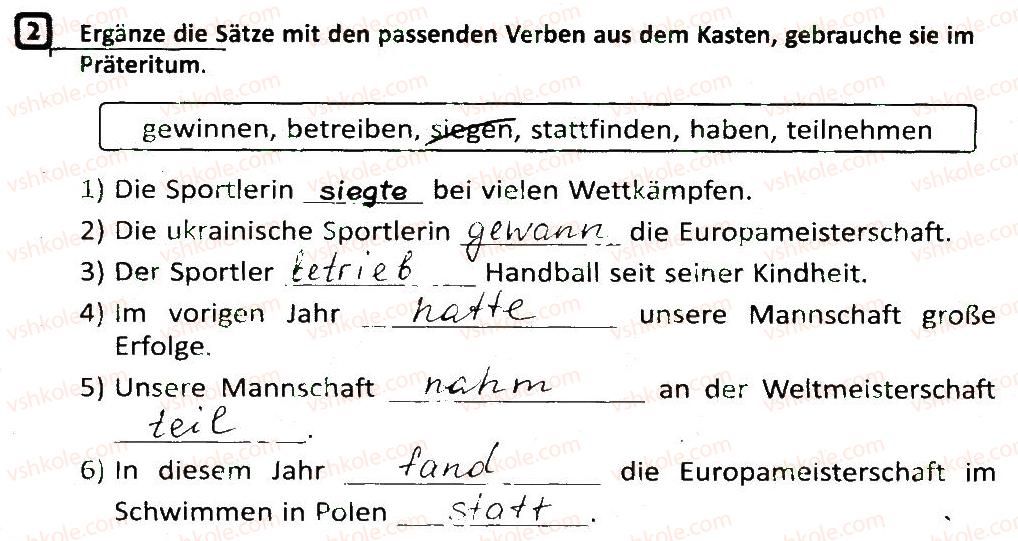 2 Ergänze die Sätze mit den passenden Verben aus dem Kasten, gebrauche sie im
Präteritum.
gewinnen, betreiben, siegen, stattfinden, haben, teilnehmen
1) Die Sportlerin siegte bei vielen Wettkämpfen.
2) Die ukrainische Sportlerin gewann die Europameisterschaft.
3) Der Sportler betrieb Handball seit seiner Kindheit.
4) Im vorigen Jahr hatte unsere Mannschaft große
Erfolge.
5) Unsere Mannschaft nahm an der Weltmeisterschaft
teil.
6) In diesem Jahr fand die Europameisterschaft im
Schwimmen in Polen statt.